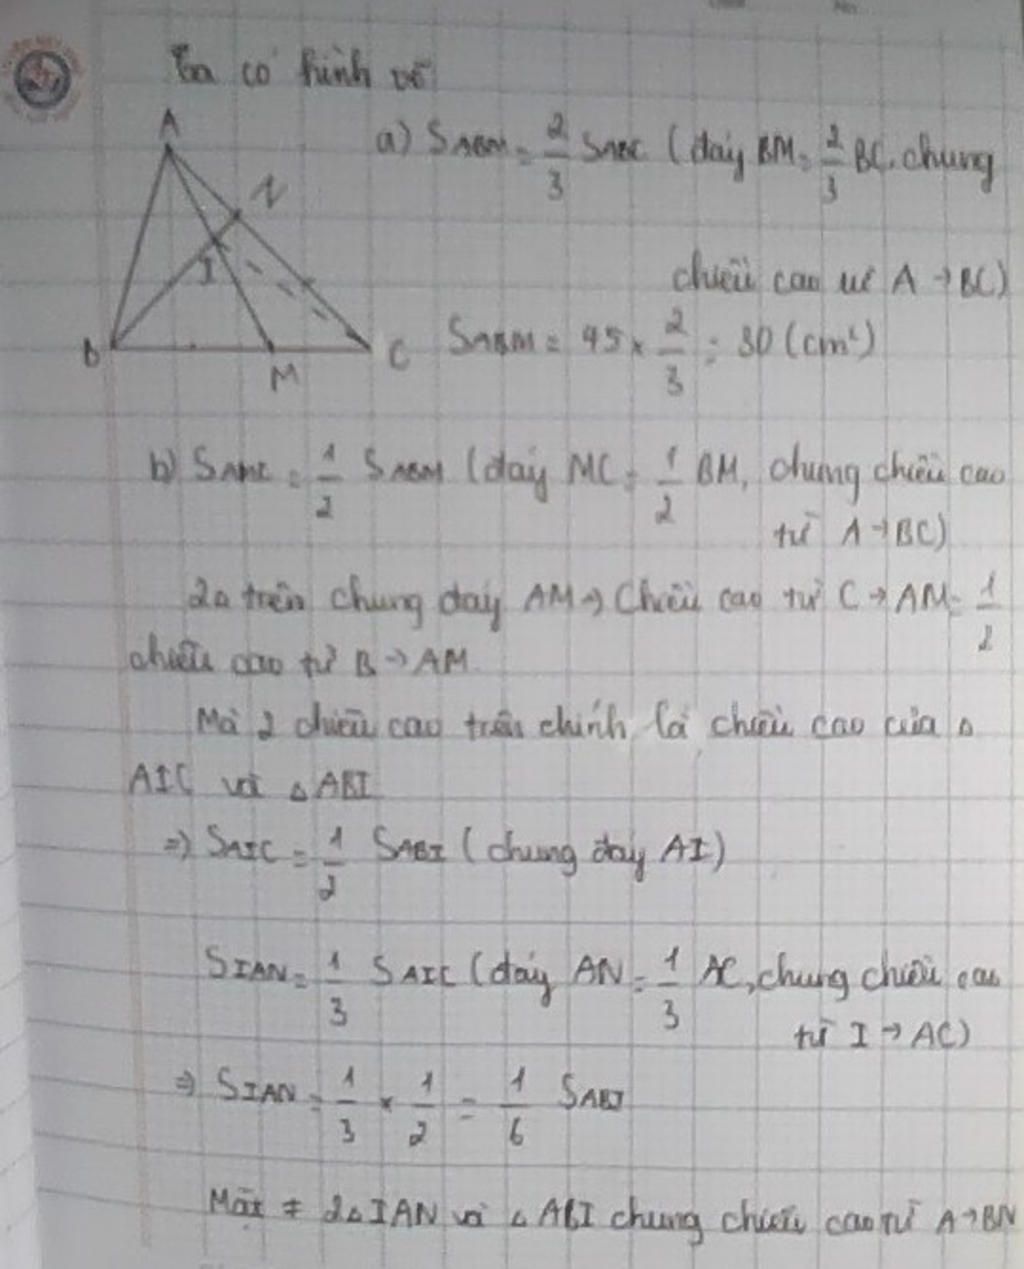 Ta có hình vẽ
A
N
I
B
M
C
a) SABM = 2/3 SABC (đáy BM = 2/3 BC, chung
chiều cao từ A → BC)
SABM = 45 × 2/3 = 30 (cm²)
b) SAMC = 1/2 SABM (đáy MC = 1/2 BM, chung chiều cao
từ A → BC)
2Δ trên chung đáy AM → Chiều cao từ C → AM = 1/2
chiều cao từ B → AM.
Mà 2 chiều cao trên chính là chiều cao của Δ
AIC và Δ ABI
⇒ SAIC = 1/2 SABI (chung đáy AI)
SIAN = 1/3 SAIC (đáy AN = 1/3 AC, chung chiều cao
từ I → AC)
⇒ SIAN = 1/3 × 1/2 = 1/6 SABI
Mặt ≠ 2Δ IAN và Δ ABI chung chiều cao từ A → BN